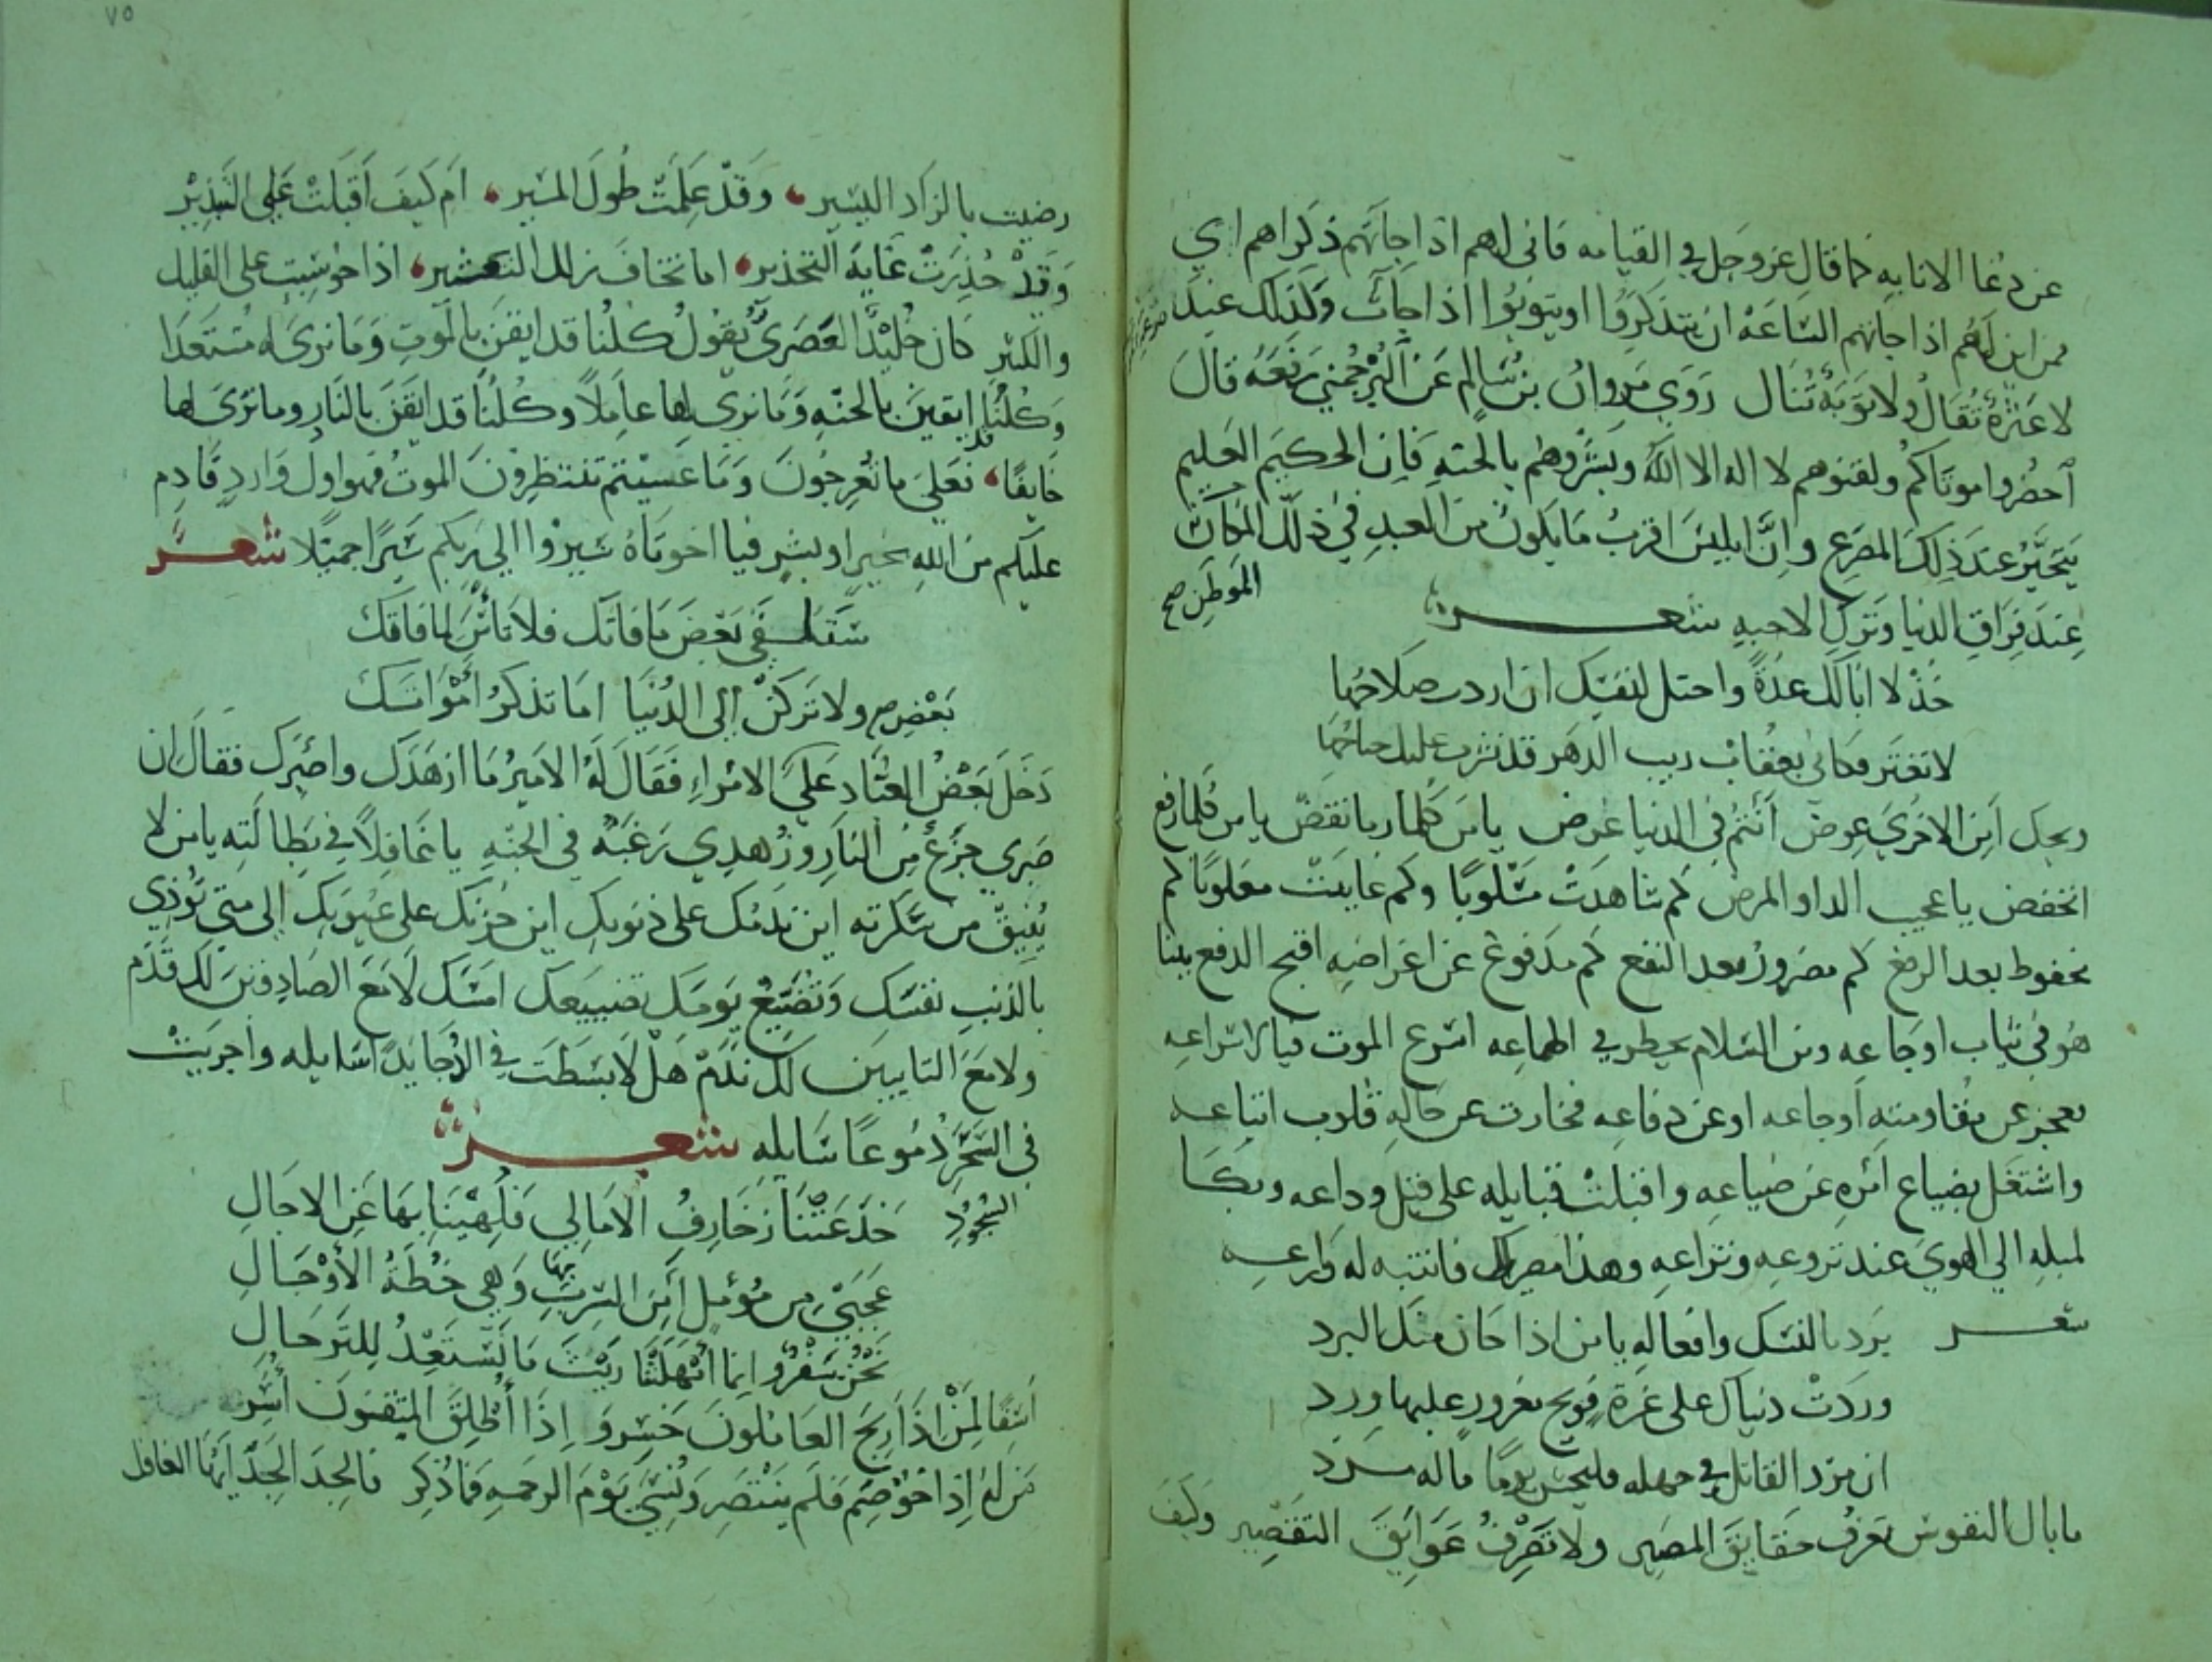 عن دعا الانابه كما قال عز وجل في القيامه فاني لهم اذا جاتهم ذكراهم اي
فمن اين لهم اذا جاتهم الساعة ان يتذكروا او يتوبوا اذا جات وكذلك عند
لا عثرة تقال ولا توبة تنال روي مروان بن سالم عن البرجمي رفعه قال
احضروا موتاكم ولقنوهم لا اله الا الله وبشروهم بالجنه فان الحكيم العليم
يتحير عند ذلك المصرع وان ابليس اقرب ما يكون من العبد في ذلك المكان
الموطن صح
عند فراق الدنيا وترك الاحبه شعر
خذ لا ابا لك عدة واحتل لنفسك ان اردت صلاحها
لا تغتر فكاني بعقاب ريب الدهر قد نشرت عليك جناحها
ويحك اين الاخري عوض انتم في الدنيا غرض يا من كلما ربا نقض يا من كلما رفع
انخفض يا عجيب الدا والمرض كم شاهدت مسلوبا وكم عاينت مغلوبا كم
مخفوط بعد الرفع كم مضرور بعد النفع كم مدفوع عن اغراضه اقبح الدفع بينا
هو في ثياب اوجاعه ومن السلام يخطر في اطماعه اسرع الموت فيا لاسراعه
فعجز عن مقاومته اوجاعه او عن دفاعه فحارت عن حاله قلوب اتباعه
واشتغل بضياع امره عن ضياعه واقبلت قبايله على قبل وداعه وبكا
لميله الي الهوي عند نزوعه ونزاعه وهذا مصرك فانتبه له وراعه
شعر برد بالنسك وافعاله يا من اذا حان منك البرد
وردت دنياك على غرة فويح مغرور عليها ورد
ان مزد القاتل في جهله فليخش يوما ما له مرد
ما بال النفوس تعرف حقايق المصير ولا تعرف عوايق التقصير وكيف
٧٥
رضيت بالزاد اليسير وقد علمت طول المسير ام كيف اقبلت على التبذير
وقد حذرت غاية التحذير اما تخاف زلل التعثير اذا حوسبت على القليل
والكثير كان خليد العصري يقول كلنا قد ايقن بالموت وما نرى له مستعدا
وكلنا قد ايقن بالجنه وما نرى لها عاملا وكلنا قد ايقن بالنار وما نرى لها
خايفا فعلى ما تعرجون وما عسيتم تنتظرون الموت فهو اول وارد قادم
عليكم من الله بخير او بشر فيا اخوتاه سيروا الى ربكم سيرا جميلا شعر
سَتَكفي بعض ما فاتك فلا تاس لما فاتك
بعض صح ولا تركن الى الدنيا اما تذكر امواتك
دخل بعض العباد على الامراء فقال له الامير ما ازهدك واصبرك فقال ان
صبري جزع من النار وزهدي رغبة في الجنه يا غافلا في بطالته يا من لا
يفيق من سكرته اين ندمك على ذنوبك اين حزنك على عيوبك الى متى توذي
بالذنب نفسك وتضيع يومك تضييعك امسك لا مع الصادقين لك قدم
ولا مع التايبين لك ندم هل لا بسطت في الدجا يدا سايله واجريت
في السحر دموعا سايله شعر
خدعتنا زخارف الامال فلهينا بها عن الاجال
عجبي من مومل امن السرب بها وهي خطة الاوجال
نحن سفر وانما امهلتنا ريث ما نستعد للترحال
اسفا لمن اذا ربح العاملون خسر واذا اطلق المتقون اسر
من له اذا خوصم فلم ينتصر ونسي يوم الرحمه فما ذكر فالجد الجد ايها الغافل